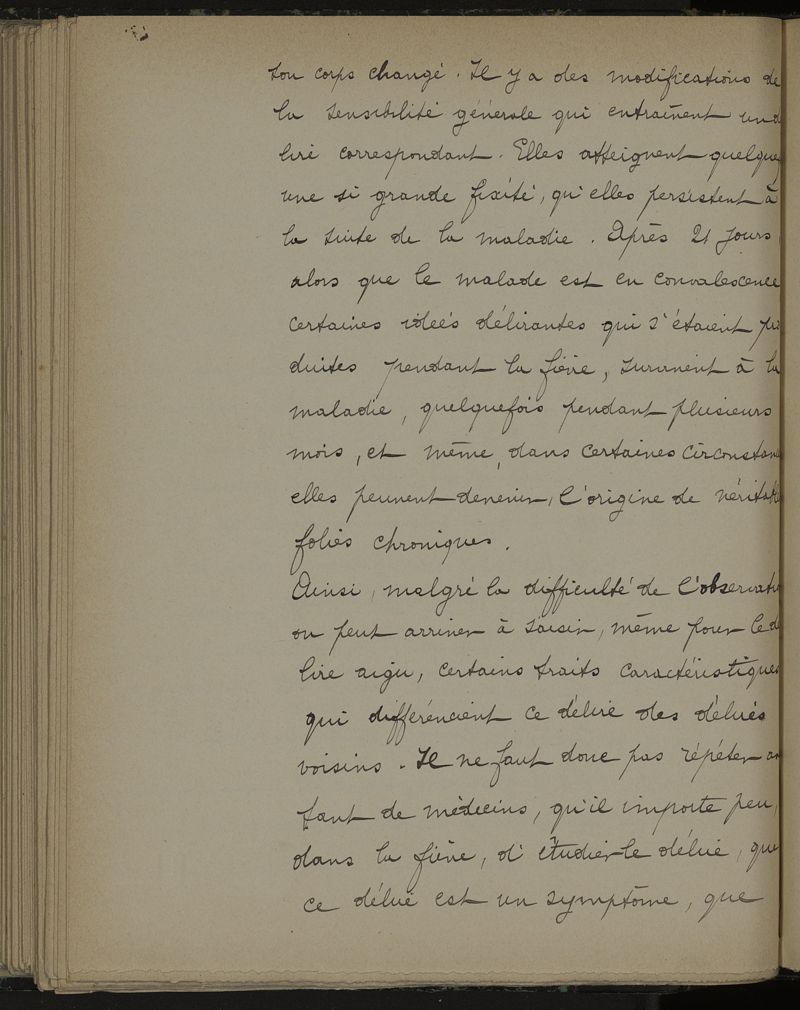 son corps changé. Il y a des modifications de
la sensibilité générale qui entraînent un d
lire correspondant. Elles atteignent quelque
une si grande fixité, qu'elles persistent à
la suite de la maladie. Après 21 jours
alors que le malade est en convalescence
certaines idées délirantes qui s'étaient pro
duites pendant la fièvre, survivent à la
maladie, quelquefois pendant plusieurs
mois, et même, dans certaines circonstan
elles peuvent devenir, l'origine de véritabl
folies chroniques.
Ainsi, malgré la difficulté de l'observatio
on peut arriver à saisir, même pour le d
lire aigu, certains traits caractéristiques
qui différencient ce délire des délires
voisins. Il ne faut donc pas répéter a
tant de médecins, qu'il importe peu,
dans la fièvre, d'étudier le délire, que
ce délire est un symptôme, que